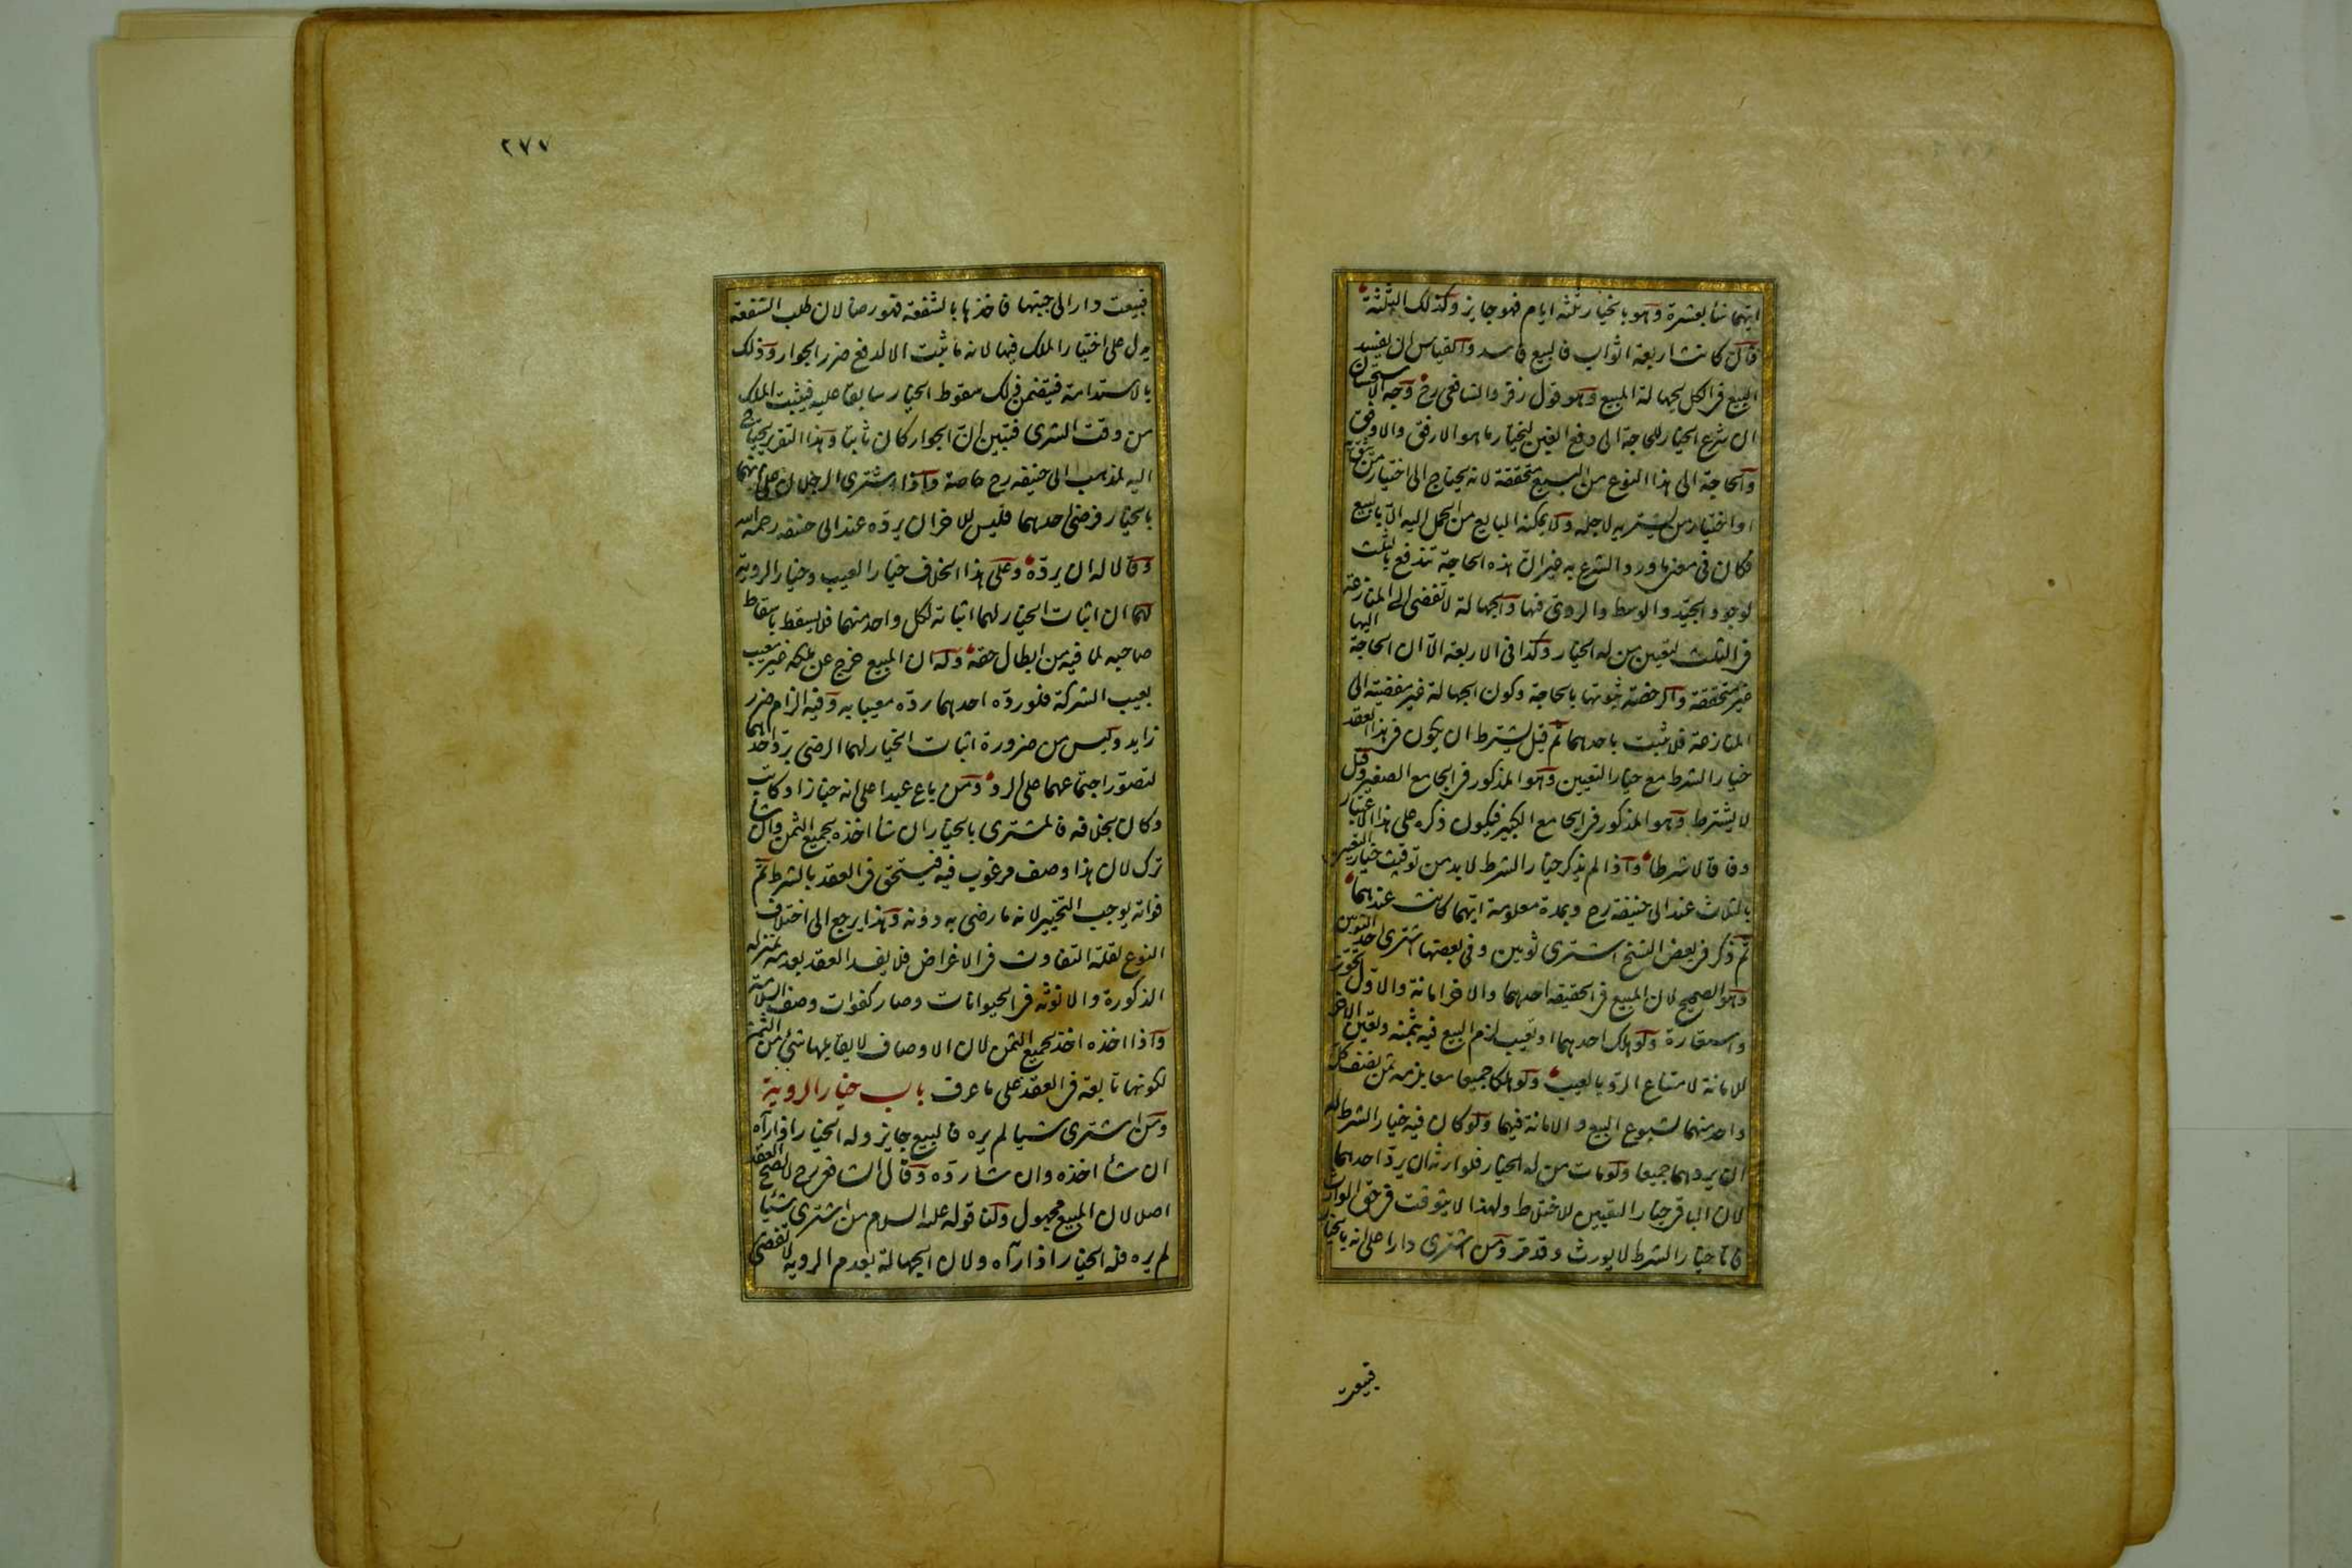 ايهما شأ بعشرة وهو بالخيار ثلثة ايام فهو جايز وكذلك الثلثة
فان كانت اربعة اثواب فالبيع فاسد والقياس ان يفسد
البيع فى الكل لجهالة المبيع وهو قول زفر والشافعى رح وجه الاستحسان
ان شرع الخيار للحاجة الى دفع الغبن ليختار ما هو الارفق والاوفق
والحاجة الى هذا النوع من البيع متحققة لانه يحتاج الى اختيار من يثق به
او اختيار من يشتريه لاجله ولا يمكنه البايع من الحمل اليه الا بالبيع
فكان فى معنى ما ورد الشرع به غير ان هذه الحاجة تندفع بالثلث
لوجود الجيد والوسط والردى فيها والجهالة لا تفضى الى المنازعة
فى الثلث لتعين من له الخيار وكذا فى الاربعة الا ان الحاجة اليها
غير متحققة والرخصة ثبوتها بالحاجة وكون الجهالة غير مفضية الى
المنازعة فلا تثبت باحدهما ثم قيل يشترط ان يكون فى هذا العقد
خيار الشرط مع خيار التعيين وهو المذكور فى الجامع الصغير وقيل
لا يشترط وهو المذكور فى الجامع الكبير فيكون ذكره على هذا الاعتبار
وفاقا لا شرطا واذا لم يذكر خيار الشرط لا بد من توقيت خيار التعيين
بالثلاث عند ابى حنيفة رح وبمدة معلومة ايتهما كانت عندهما
ثم ذكر فى بعض النسخ اشترى ثوبين وفى بعضها اشترى احد الثوبين
وهو الصحيح لان المبيع فى الحقيقة احدهما والاخر امانة والاول تجوز
واستعارة ولو هلك احدهما او تعيب لزم البيع فيه بثمنه وتعين الاخر
للامانة لامتناع الرد بالعيب ولو هلكا جميعا معا يلزمه ثمن نصف كل
واحد منهما لشيوع البيع والامانة فيهما ولو كان فيه خيار الشرط له
ان يردهما جميعا ولو مات من له الخيار فلوارثه ان يرد احدهما
لان الباقى خيار التعيين للاختلاط ولهذا لا يتوقت فى حق الوارث
فاما خيار الشرط لا يورث وقد مر ومن اشترى دارا على انه بالخيار
فبيعت
٢٧٧
فبيعت دار الى جنبها فاخذها بالشفعة فهو رضا لان طلب الشفعة
يدل على اختيار الملك فيها لانه ما ثبت الا لدفع ضرر الجوار وذلك
بالاستدامة فيتضمن ذلك سقوط الخيار سابقا عليه فيثبت الملك
من وقت الشرى فتبين ان الجوار كان ثابتا وهذا التقرير يحتاج
اليه لمذهب ابى حنيفه رح خاصة واذا اشترى الرجلان على انهما
بالخيار فرضى احدهما فليس للاخر ان يرده عند ابى حنيفه رحمه الله
وقالا له ان يرده وعلى هذا الخلاف خيار العيب وخيار الروية
لهما ان اثبات الخيار لهما اثباته لكل واحد منهما فلا يسقط باسقاط
صاحبه لما فيه من ابطال حقه وله ان المبيع خرج عن ملكه غير معيب
بعيب الشركة فلو رده احدهما رده معيبا به وفيه الزام ضرر
زايد وليس من ضرورة اثبات الخيار لهما الرضى برد احدهما
لتصور اجتماعهما على الرد ومن باع عبدا على انه خباز او كاتب
وكان بخلافه فالمشترى بالخيار ان شأ اخذه بجميع الثمن وان شأ
ترك لان هذا وصف مرغوب فيه فيستحق فى العقد بالشرط ثم
فواته يوجب التخيير لانه ما رضى به دونه وهذا يرجع الى اختلاف
النوع لقلة التفاوت فى الاغراض فلا يفسد العقد بعدمه بمنزلة
الذكورة والانوثه فى الحيوانات وصار كفوات وصف السلامة
واذا اخذه اخذ بجميع الثمن لان الاوصاف لا يقابلها شئ من الثمن
لكونها تابعة فى العقد على ما عرف باب خيار الروية
ومن اشترى شيا لم يره فالبيع جايز وله الخيار اذا رآه
ان شأ اخذه وان شا رده وقال الشافعى رح لا يصح العقد
اصلا لان المبيع مجهول ولنا قوله عليه السلام من اشترى شيئا
لم يره فله الخيار اذا رآه ولان الجهالة بعدم الروية لا تفضى